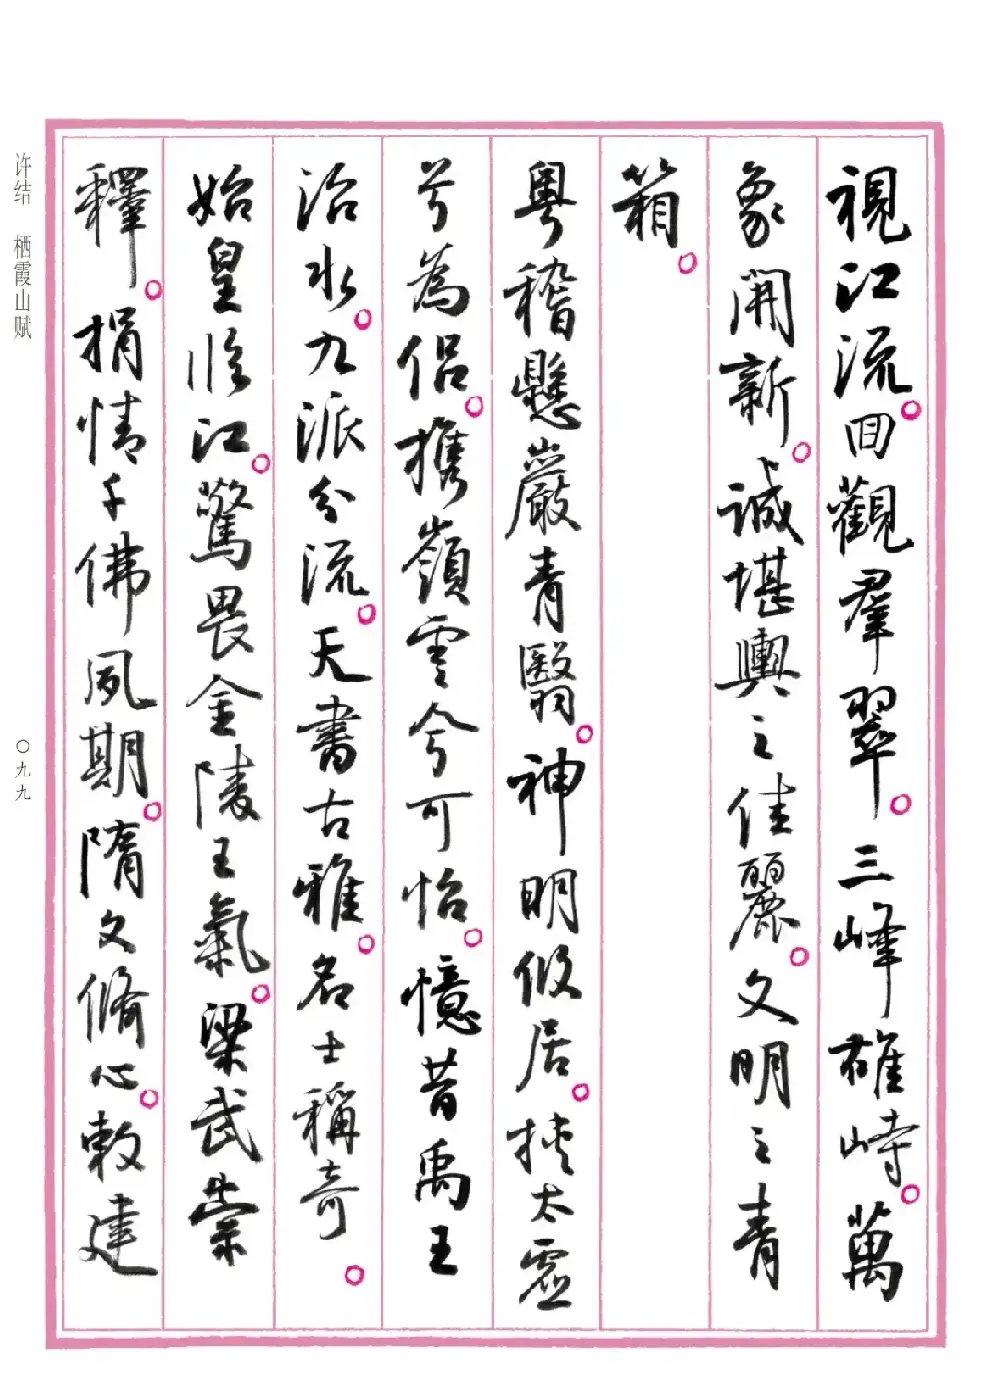 視江流。回觀羣翠。三峰雄峙。萬
象開新。誠堪輿之佳麗。文明之青
箱。
粵稽懸巖青翳。神明攸居。挾太虛
兮為侶。携嶺雲兮可怡。憶昔禹王
治水。九派分流。天書古雅。名士稱奇。
始皇臨江。驚畏金陵王氣。梁武崇
釋。捐情千佛夙期。隋文脩心。敕建
许结 栖霞山赋
〇九九